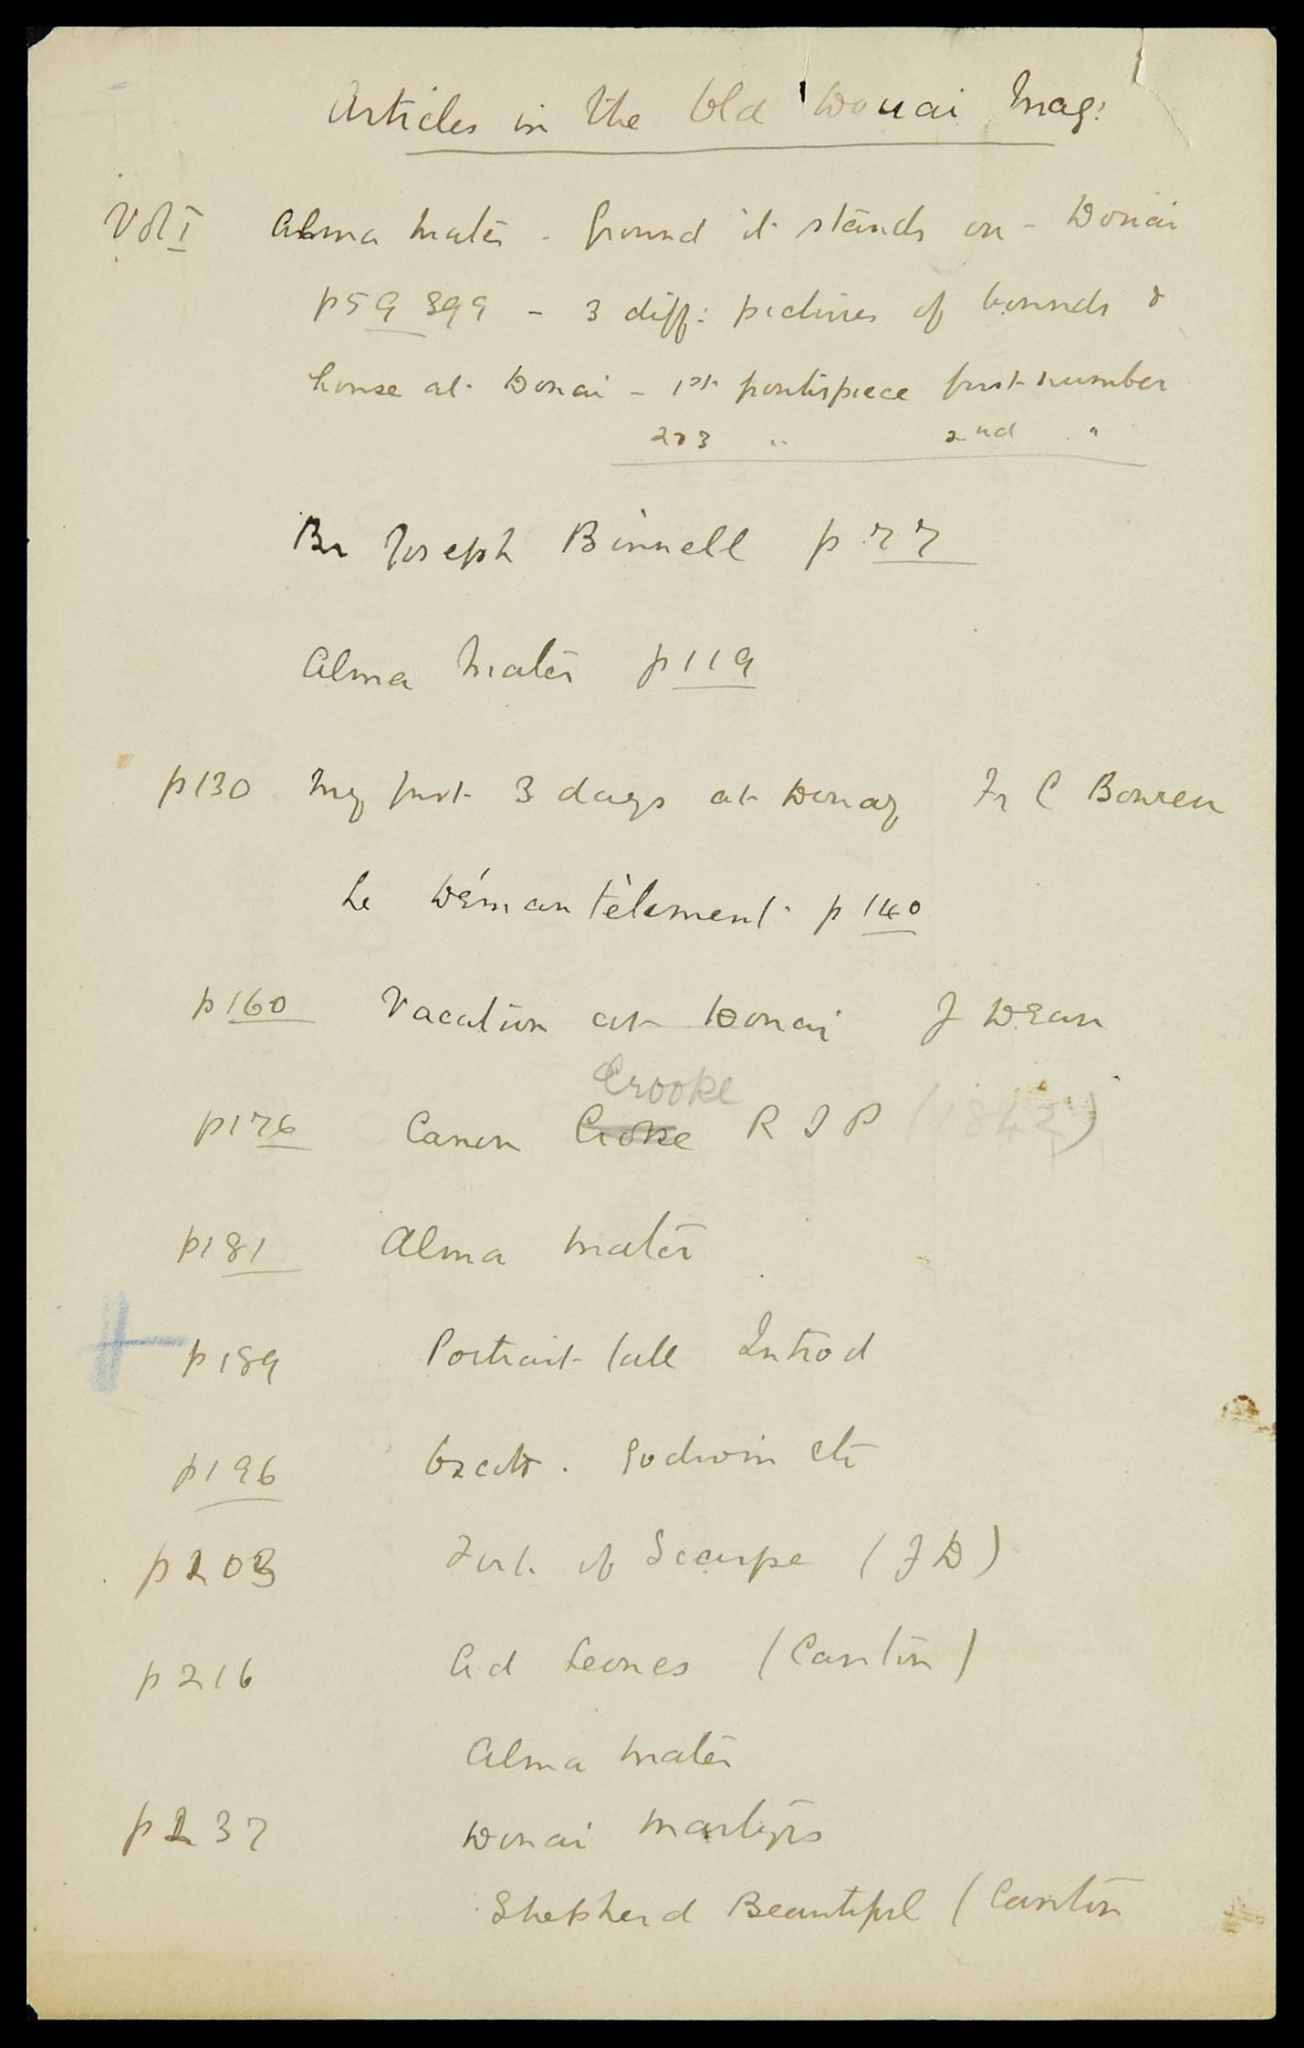 Articles in the Old Douai Mag:
Vol I Alma Mater - Ground it stands on - Douai
p59 &99 - 3 diff: pictures of bounds &
house at Douai - 1st frontispiece first number
2&3 " 2nd "
Br Joseph Binnell p 77
Alma Mater p119
p130 My first 3 days at Douay Fr C Bowren
Le Démantèlement p 140
p160 Vacation at Douai J Dean
Crooke
p176 Canon Croke R I P (1842)
p181 Alma Mater
p189 Portrait Introd
p196 Godwin etc
p203 Fort of Scarpe (J D)
p216 Ad Leones (Canton)
Alma Mater
p237 Douai Martyrs
Shepherd Beautiful (Canton